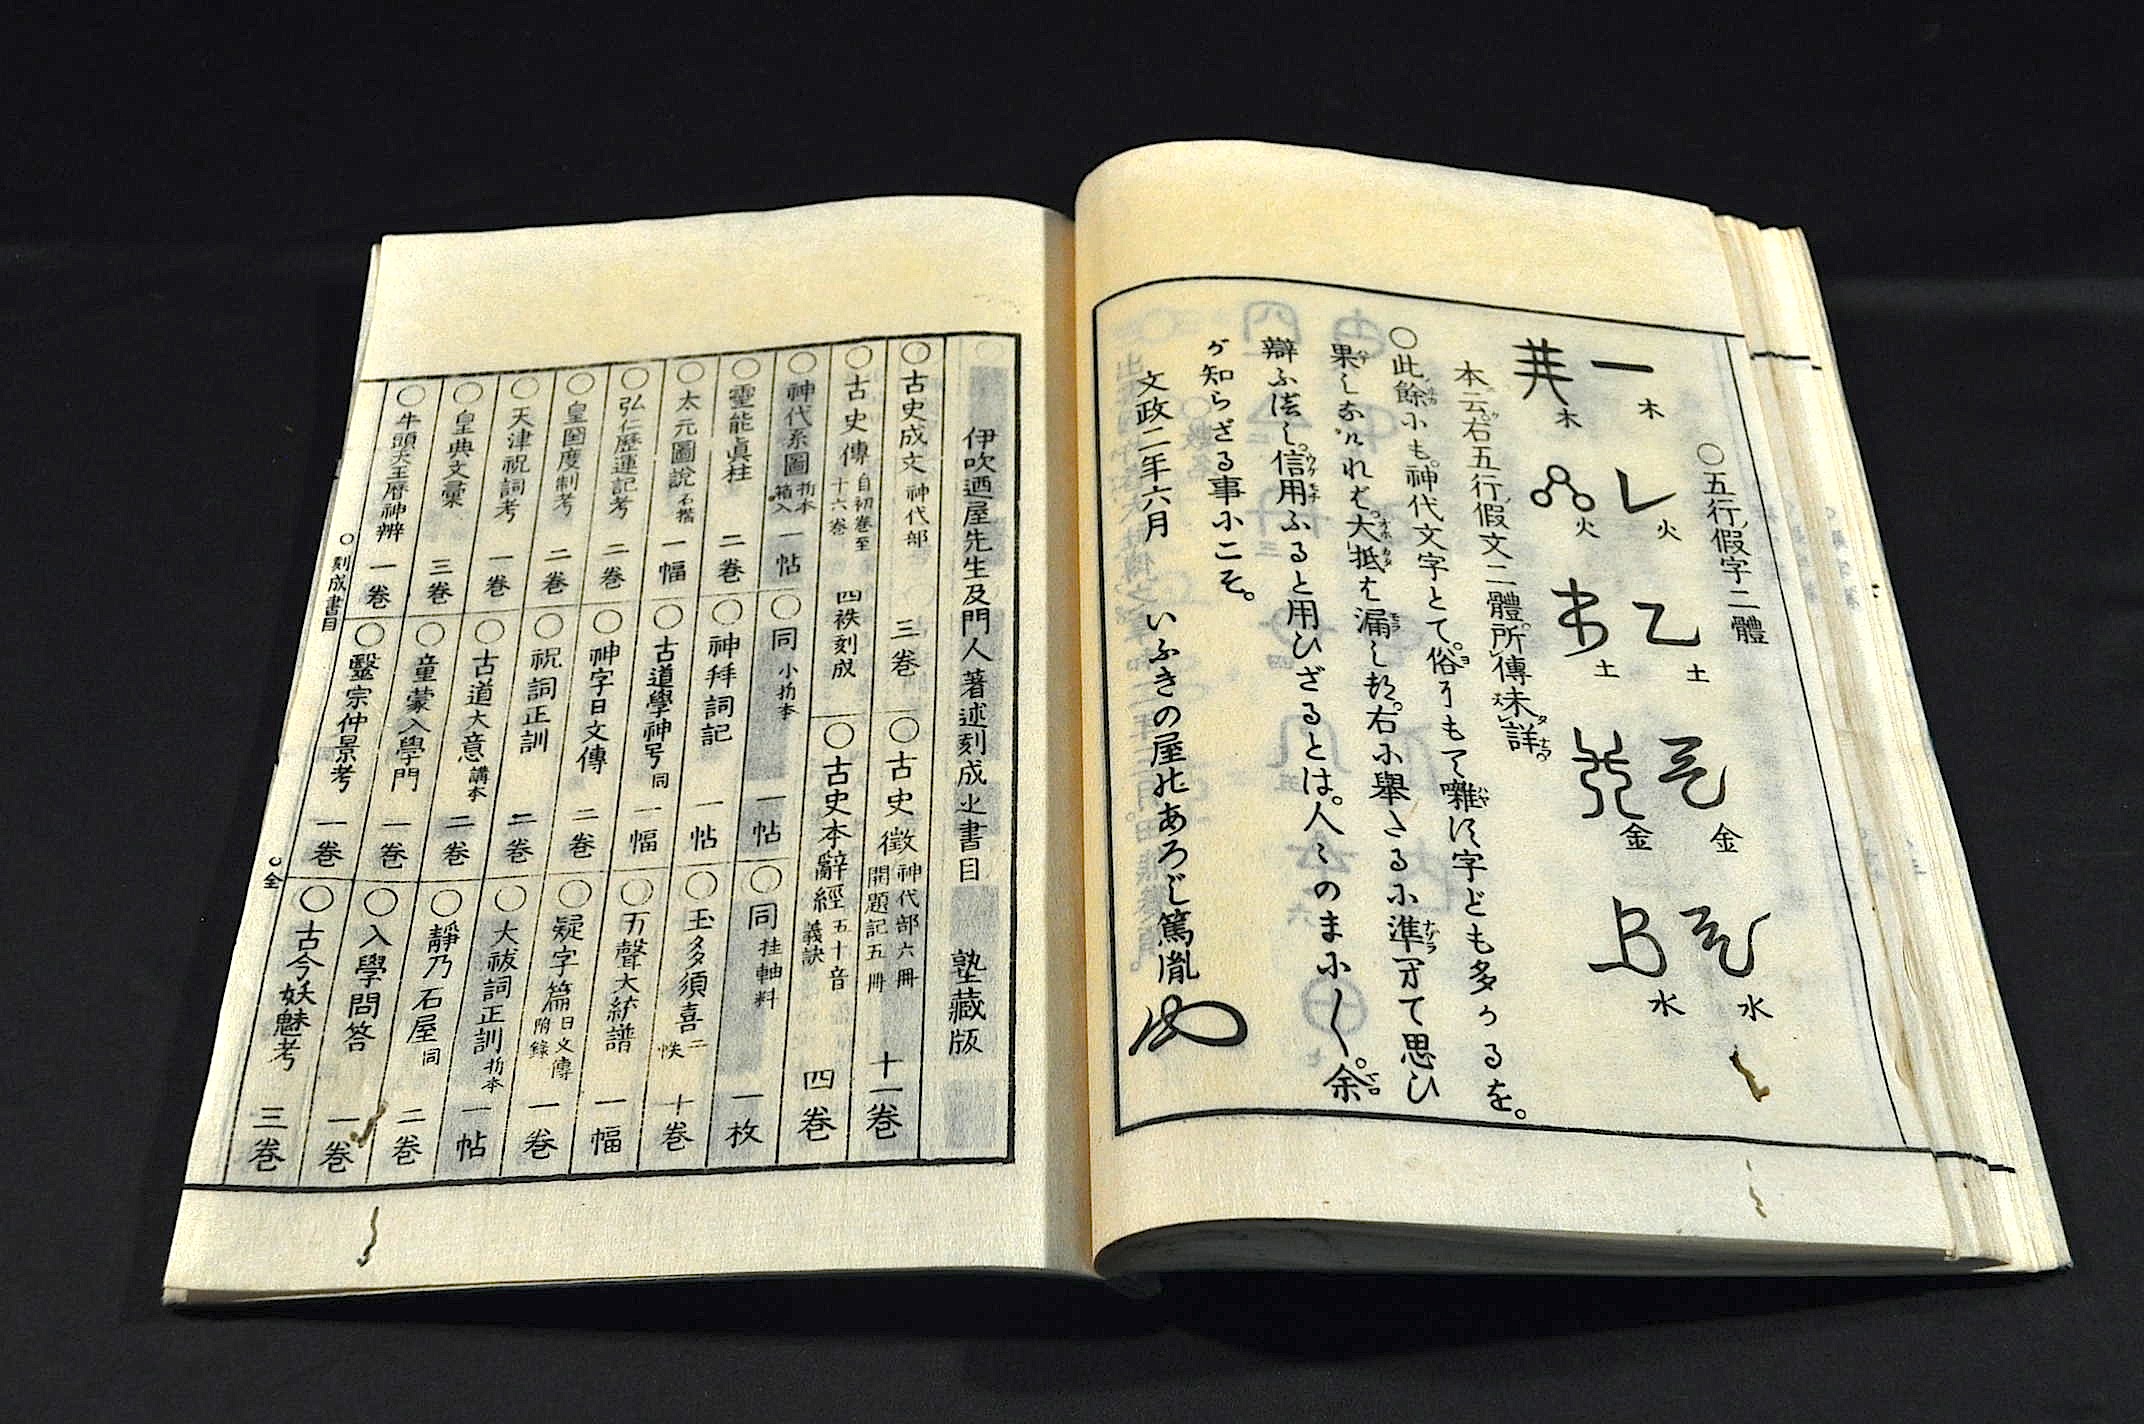 ○五行假字二體
一木 レ火 乙土 金 水
木 火 土 金 水
本云右五行假文二體所傳未詳。
○此餘にも神代文字とて。俗にもて囃す字ども多かるを。
果しなければ大抵は漏しお。右に擧たるに準へて思ひ
辯ふべし。信用ふると用ひざるとは。人々のまに〳〵。余
が知らざる事にこそ。
文政二年六月 いふきの屋のあろじ篤胤
伊吹廼屋先生及門人著述刻成之書目 塾藏版
○古史成文 神代部 三巻 ○古史徴 神代部六冊 開題記五冊 十一巻
○古史傳 自初巻至十六巻 四袟刻成 ○古史本辭經 五十音義訣 四巻
○神代系圖 折本箱入 一帖 ○同 小折本 一帖 ○同 挂軸料 一枚
○靈能眞柱 二巻 ○神拜詞記 一帖 ○玉多須喜 二帙 十巻
○太元圖說 石摺 一幅 ○古道學神号 同 一幅 ○五聲大統譜 一幅
○弘仁歷運記考 二巻 ○神字日文傳 二巻 ○疑字篇 日文傳附錄 一巻
○皇國度制考 二巻 ○祝詞正訓 二巻 ○大祓詞正訓 折本 一帖
○天津祝詞考 一巻 ○古道大意 講本 二巻 ○靜乃石屋 同 二巻
○皇典文彙 三巻 ○童蒙入學門 一巻 ○入學問答 一巻
○牛頭天王曆神辨 一巻 ○醫宗仲景考 一巻 ○古今妖魅考 三巻
○刻成書目 ○全